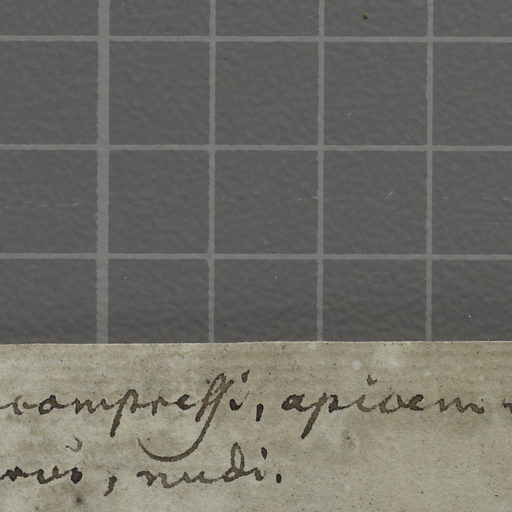 compressi, apicem
nudi.